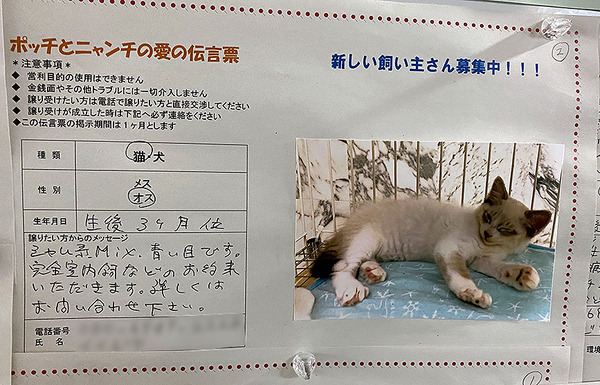 ②
ポッチとニャンチの愛の伝言票
新しい飼い主さん募集中！！！
＊注意事項＊
◆ 営利目的の使用はできません
◆ 金銭面やその他トラブルには一切介入しません
◆ 譲り受けたい方は電話で譲りたい方と直接交渉してください
◆ 譲り受けが成立した時は下記へ必ず連絡をください
◆この伝言票の掲示期間は1ヶ月とします
種類 猫・犬
性別 メス オス
生年月日 生後3ヶ月位
譲りたい方からのメッセージ
シャム系Mix.青い目です。
完全室内飼などのお約束
いただきます。詳しくは
お問い合わせ下さい。
電話番号
氏名
環境
①